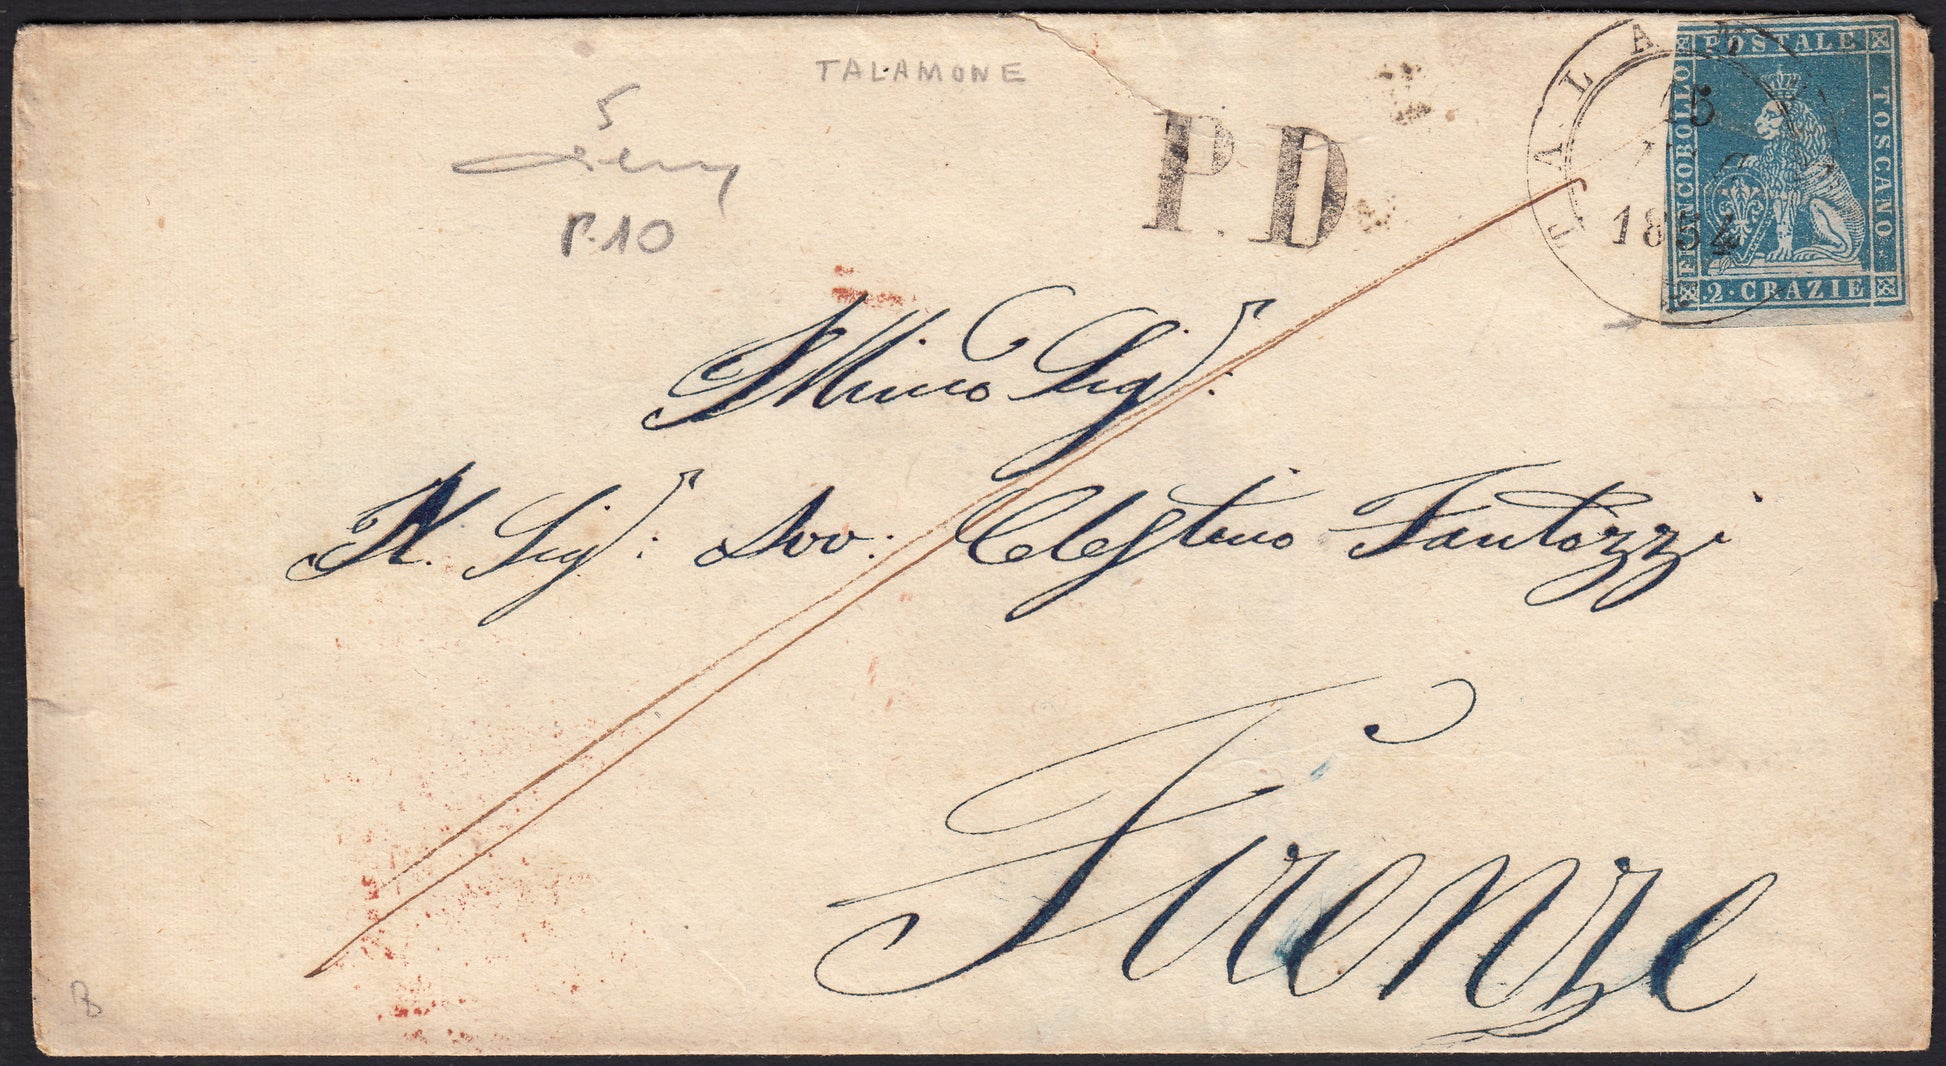 TALAMONE
5
P.10
P.D
TALAM
15
1854
POSTALE
FRANCOBOLLO
TOSCANO
2 · CRAZIE
Illmo Sig.r:
Il Sig.r: Avv: Celestino Fantozzi
Firenze
B